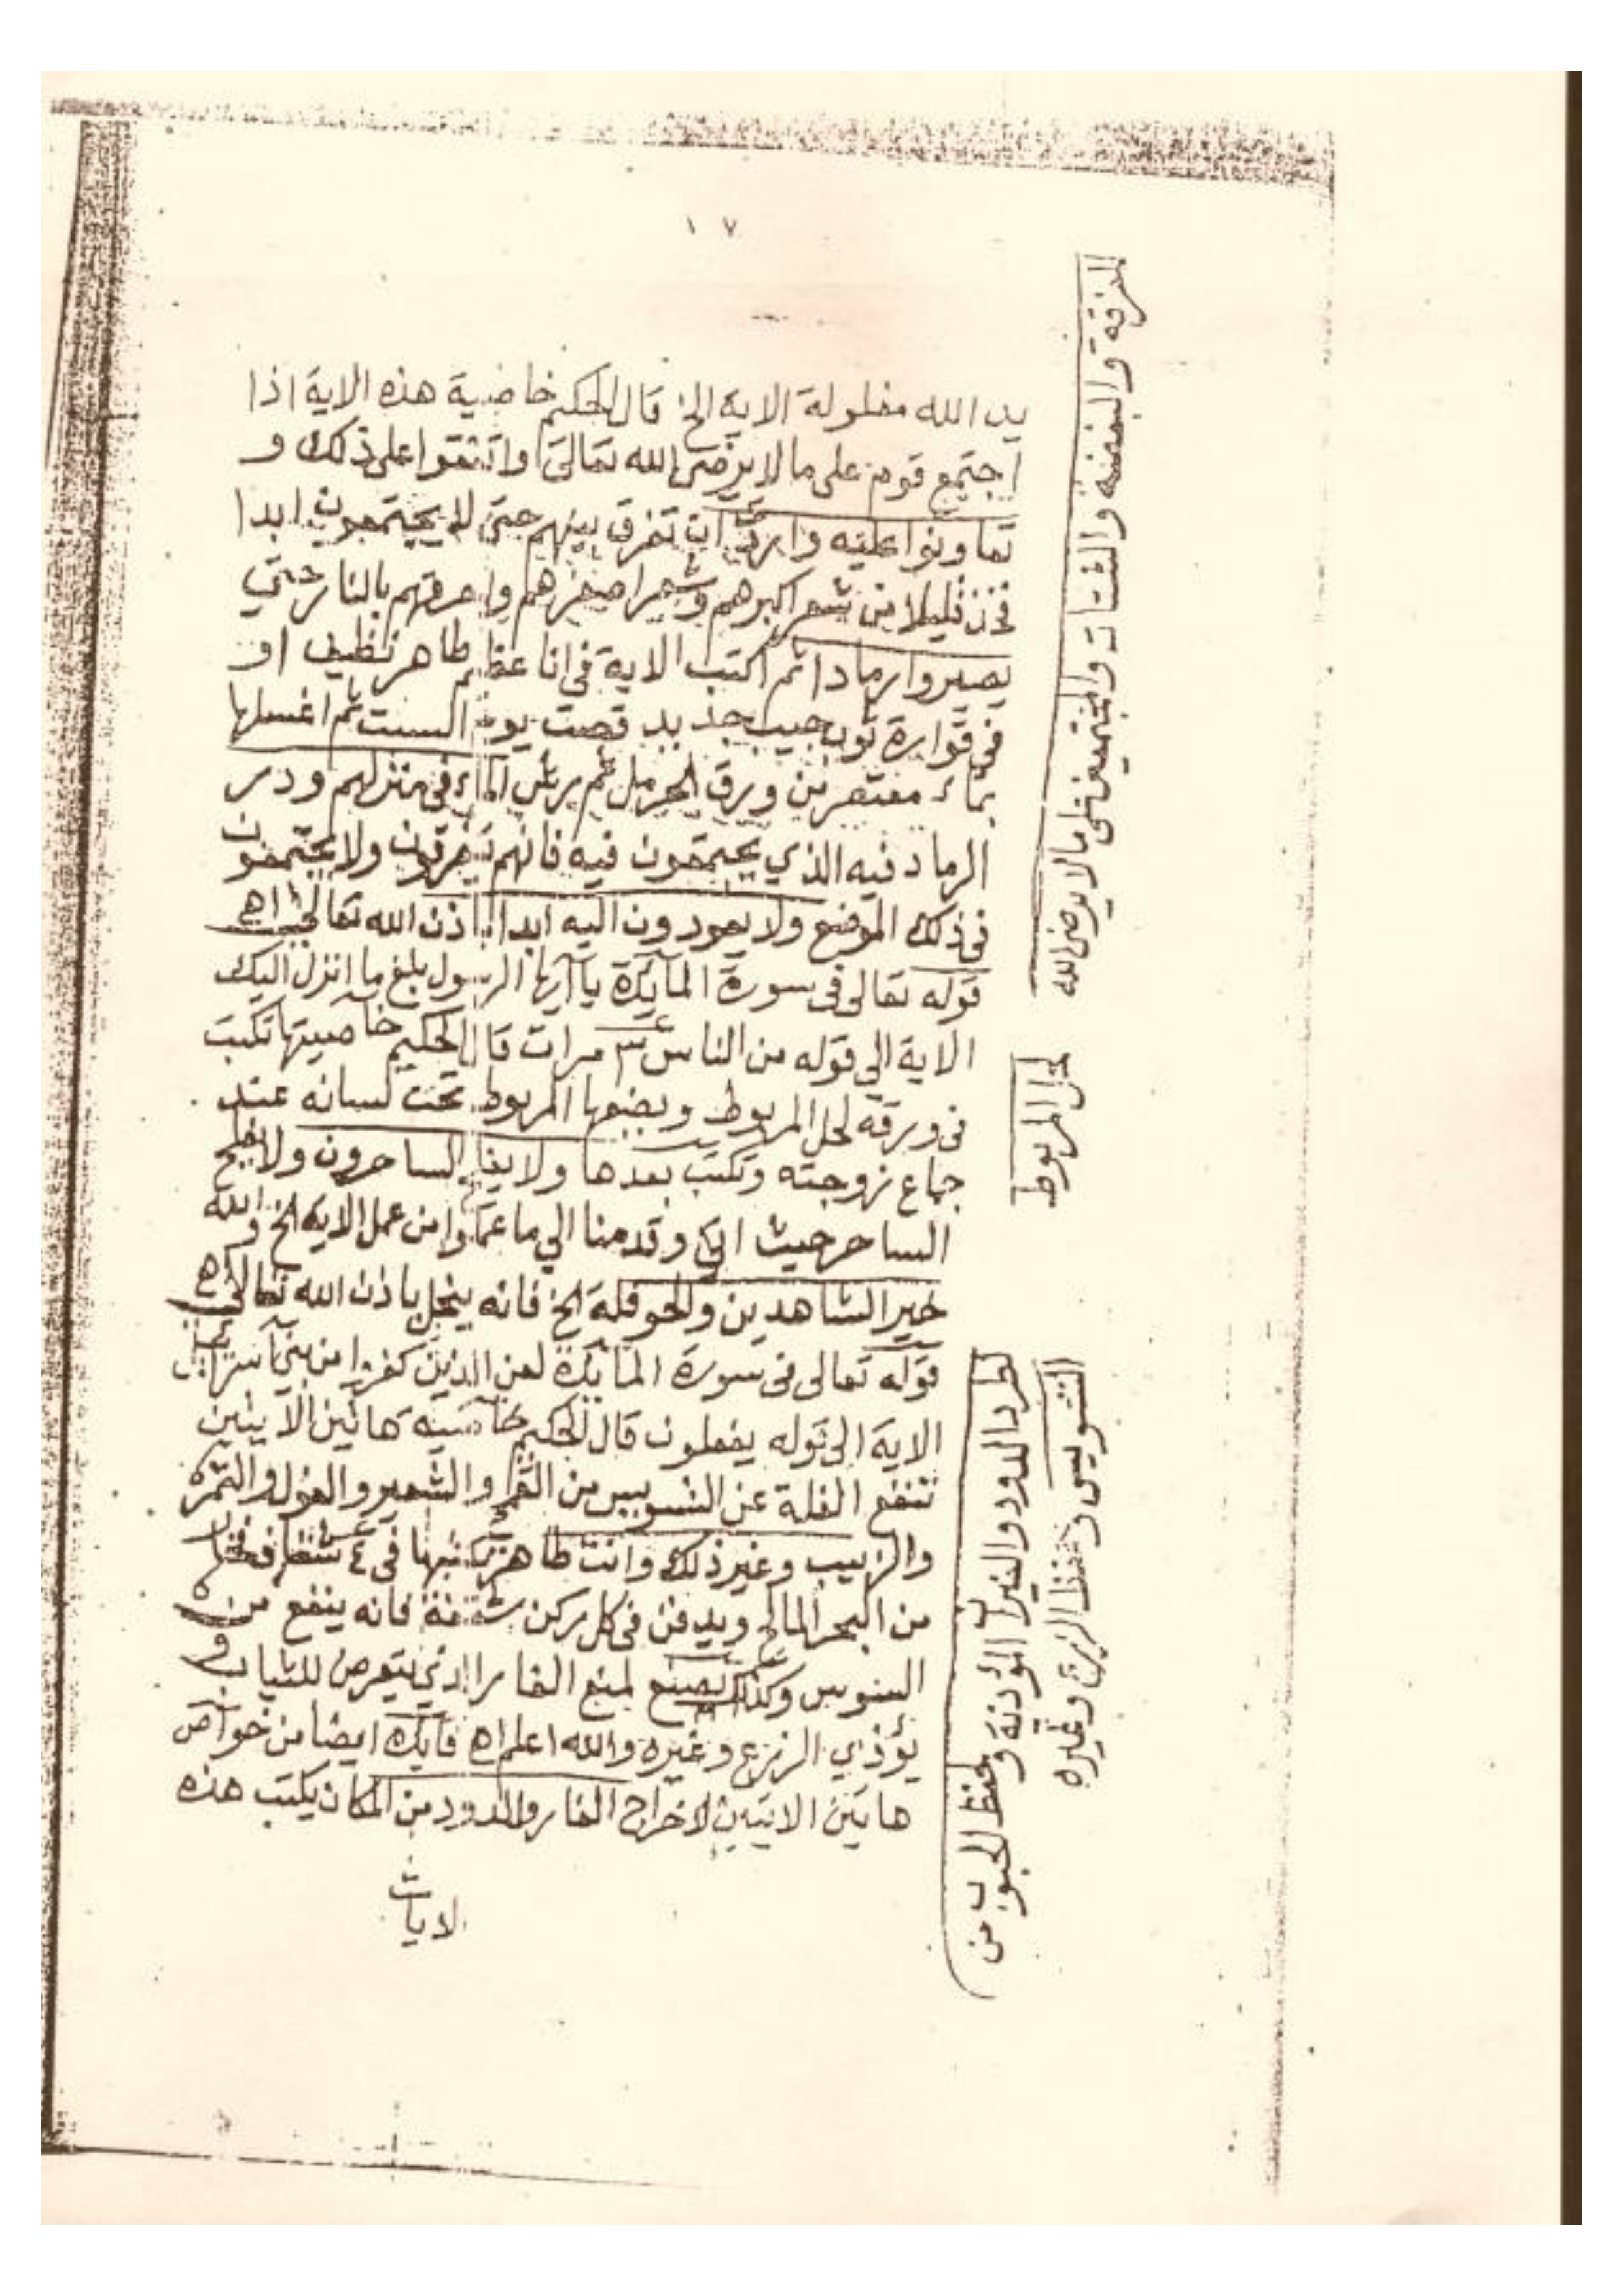 ١٧
يد الله مغلولة الاية الخ قال الحكيم خاصية هذه الاية اذا
اجتمع قوم على ما لا يرضى الله تعالى واتفقوا على ذلك و
تعاونوا عليه واردت ان تفرق بينهم حتى لا يجتمعون ابدا
فخذ قليلا من شعر اكبرهم وشعر اصغرهم واحرقهم بالنار حتى
يصيروا رمادا ثم اكتب الاية في انا عظيم طاهر نظيف او
في قوارة ثوب جيب جديد قصت يوم السبت ثم اغسلها
بماء معتصر من ورق الحرمل ثم يرش الماء في منزلهم وذر
الرماد فيه الذي يجتمعون فيه فانهم يتفرقون ولا يجتمعون
في ذلك الموضع ولا يعودون اليه ابدا باذن الله تعالى اهـ
قوله تعالى في سورة المآئدة يآايها الرسول بلغ ما انزل اليك
الاية الي قوله من الناس ٣ مرات قال الحكيم خاصيتها تكتب
في ورقة لحل المربوط ويضعها المربوط تحت لسانه عند
جماع زوجته وتكتب بعدها ولا يفلح الساحرون ولا يفلح
الساحر حيث اتى وقدمنا الي ما عملوا من عمل الاية الخ والله
خير الشاهدين والحوقلة الخ فانه ينحل باذن الله تعالى اهـ
قوله تعالى في سورة المائدة لعن الذين كفروا من بني اسرائيل
الاية الى قوله يفعلون قال الحكيم خاصية هاتين الآيتين
تنفع الغلة عن التسويس من القمح والشعير والفول والتمر
والزبيب وغير ذلك وانت طاهر تكتبها في ٤ شقاف فخار
من البحر المالح ويدفن في كل ركن شقفة فانه ينفع من
السوس وكذلك يصنع لمنع الفار الذي يتعرض للثياب و
يؤذي الزرع وغيره والله اعلم اهـ فائدة ايضا من خواص
هاتين الايتين لاخراج الفار والدود من المكان يكتب هذه
الايات
للفرقة والبغضة والشتات والمجتمعين على ما لا يرضى الله
لحل المربوط
لطرد الدود والفيران المؤذنة ولحفظ الحبوب من
التسويس وحفظ الزرع وغيره